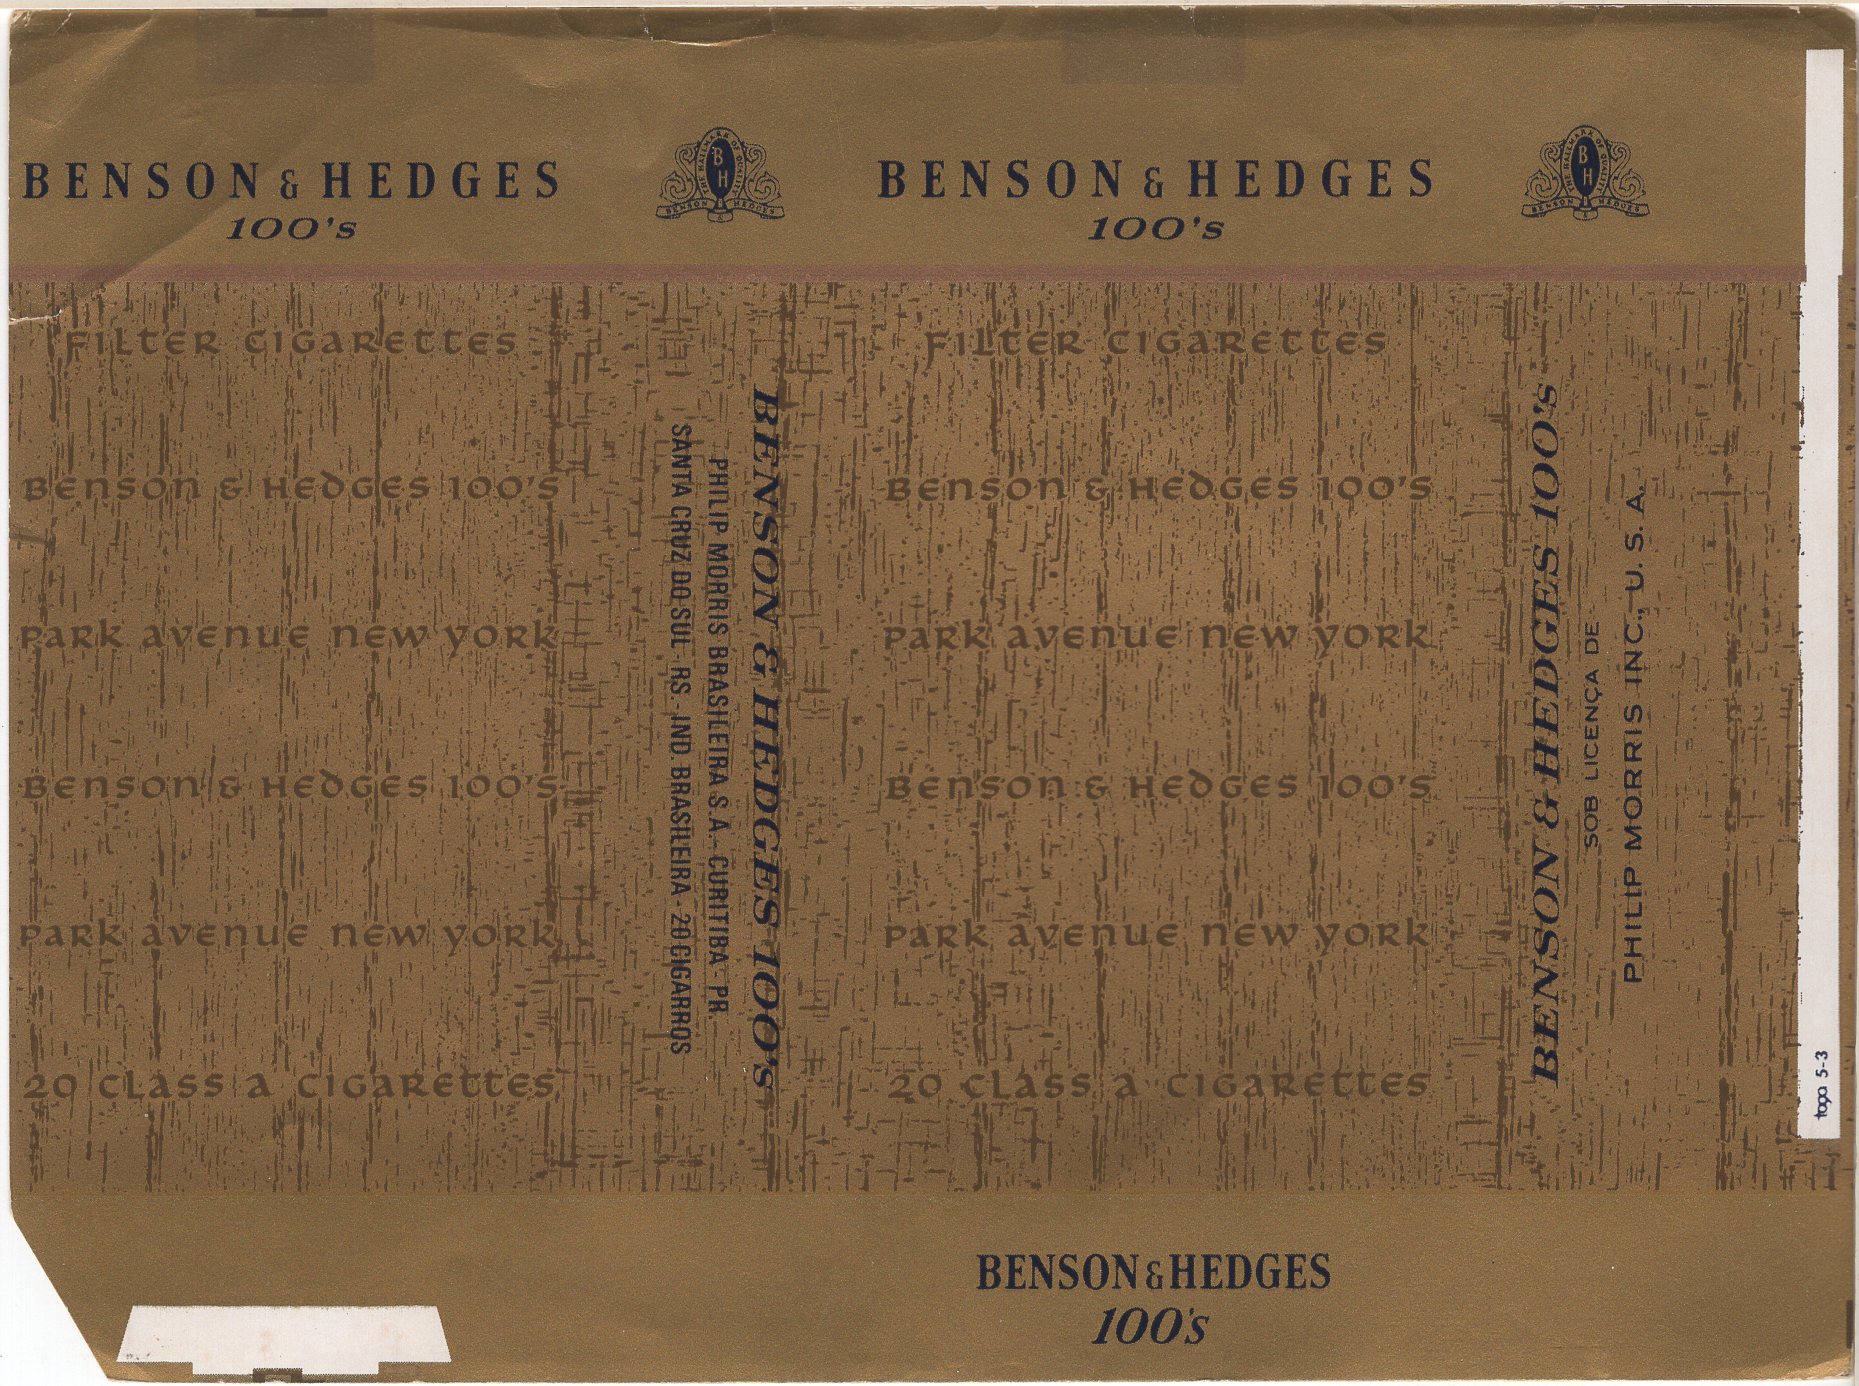 BENSON & HEDGES
100's
THE HALLMARK OF QUALITY
B
H
BENSON & HEDGES
FILTER CIGARETTES
BENSON & HEDGES 100'S
PARK AVENUE NEW YORK
BENSON & HEDGES 100'S
PARK AVENUE NEW YORK
20 CLASS A CIGARETTES
BENSON & HEDGES 100's
PHILIP MORRIS BRASILEIRA S.A. - CURITIBA - PR
SANTA CRUZ DO SUL - RS - IND. BRASILEIRA - 20 CIGARROS
BENSON & HEDGES
100's
THE HALLMARK OF QUALITY
B
H
BENSON & HEDGES
FILTER CIGARETTES
BENSON & HEDGES 100'S
PARK AVENUE NEW YORK
BENSON & HEDGES 100'S
PARK AVENUE NEW YORK
20 CLASS A CIGARETTES
BENSON & HEDGES 100's
SOB LICENÇA DE
PHILIP MORRIS INC., U. S. A.
5-3
BENSON & HEDGES
100's